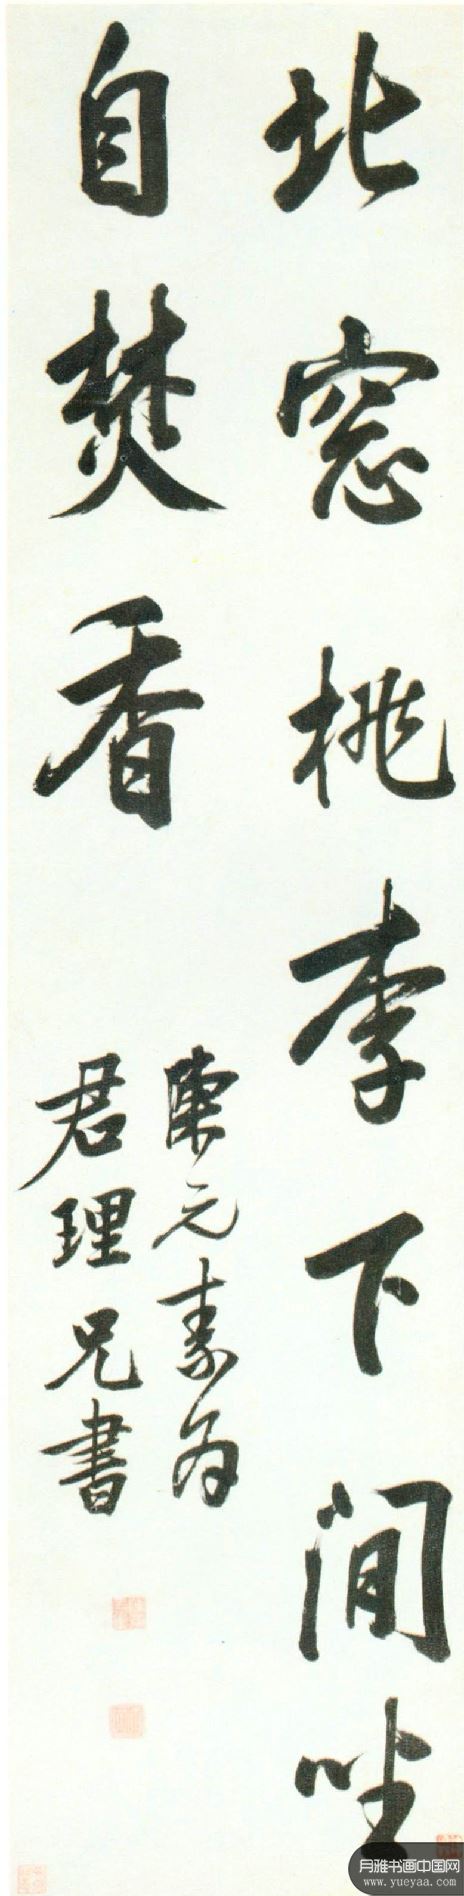 北窓桃李下閒坐
自焚香
陳元素為
君理兄書
月雅书画中国网
www.yueyaa.com